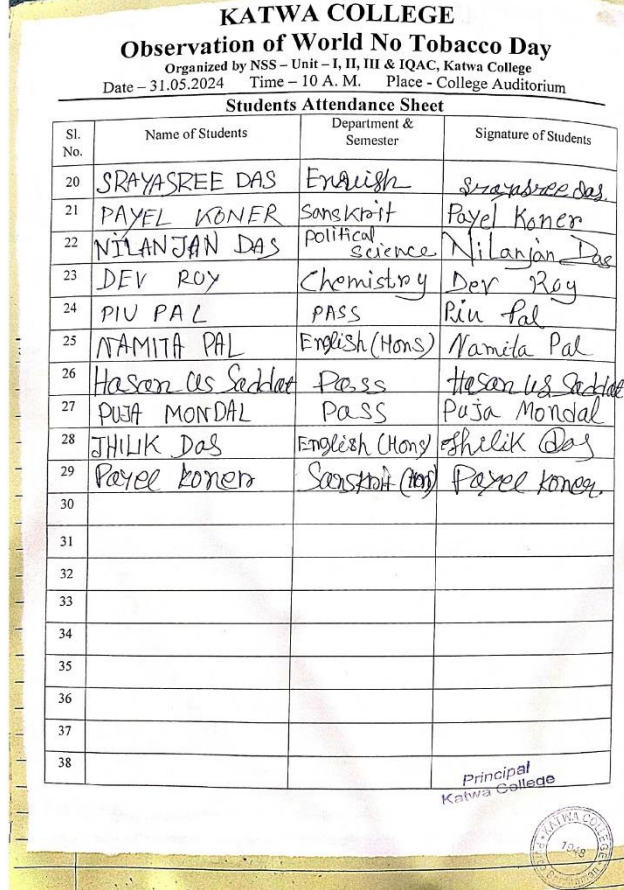 KATWA COLLEGE
Observation of World No Tobacco Day
Organized by NSS – Unit – I, II, III & IQAC, Katwa College
Date – 31.05.2024 Time – 10 A. M. Place - College Auditorium
Students Attendance Sheet
Sl. No. Name of Students Department & Semester Signature of Students
20 SRAYASREE DAS English Srayasree Das.
21 PAYEL KONER Sanskrit Payel Koner
22 NILANJAN DAS Political Science Nilanjan Das
23 DEV ROY Chemistry Dev Roy
24 PIU PAL PASS Piu Pal
25 NAMITA PAL English (Hons) Namita Pal
26 Hasan Us Saddat Pass Hasan Us Saddat
27 PUJA MONDAL PASS Puja Mondal
28 JHILIK DAS English (Hons) Jhilik Das
29 Payel Koner Sanskrit (Hons) Payel Koner.
30
31
32
33
34
35
36
37
38
Principal
Katwa College
KATWA COLLEGE
1948